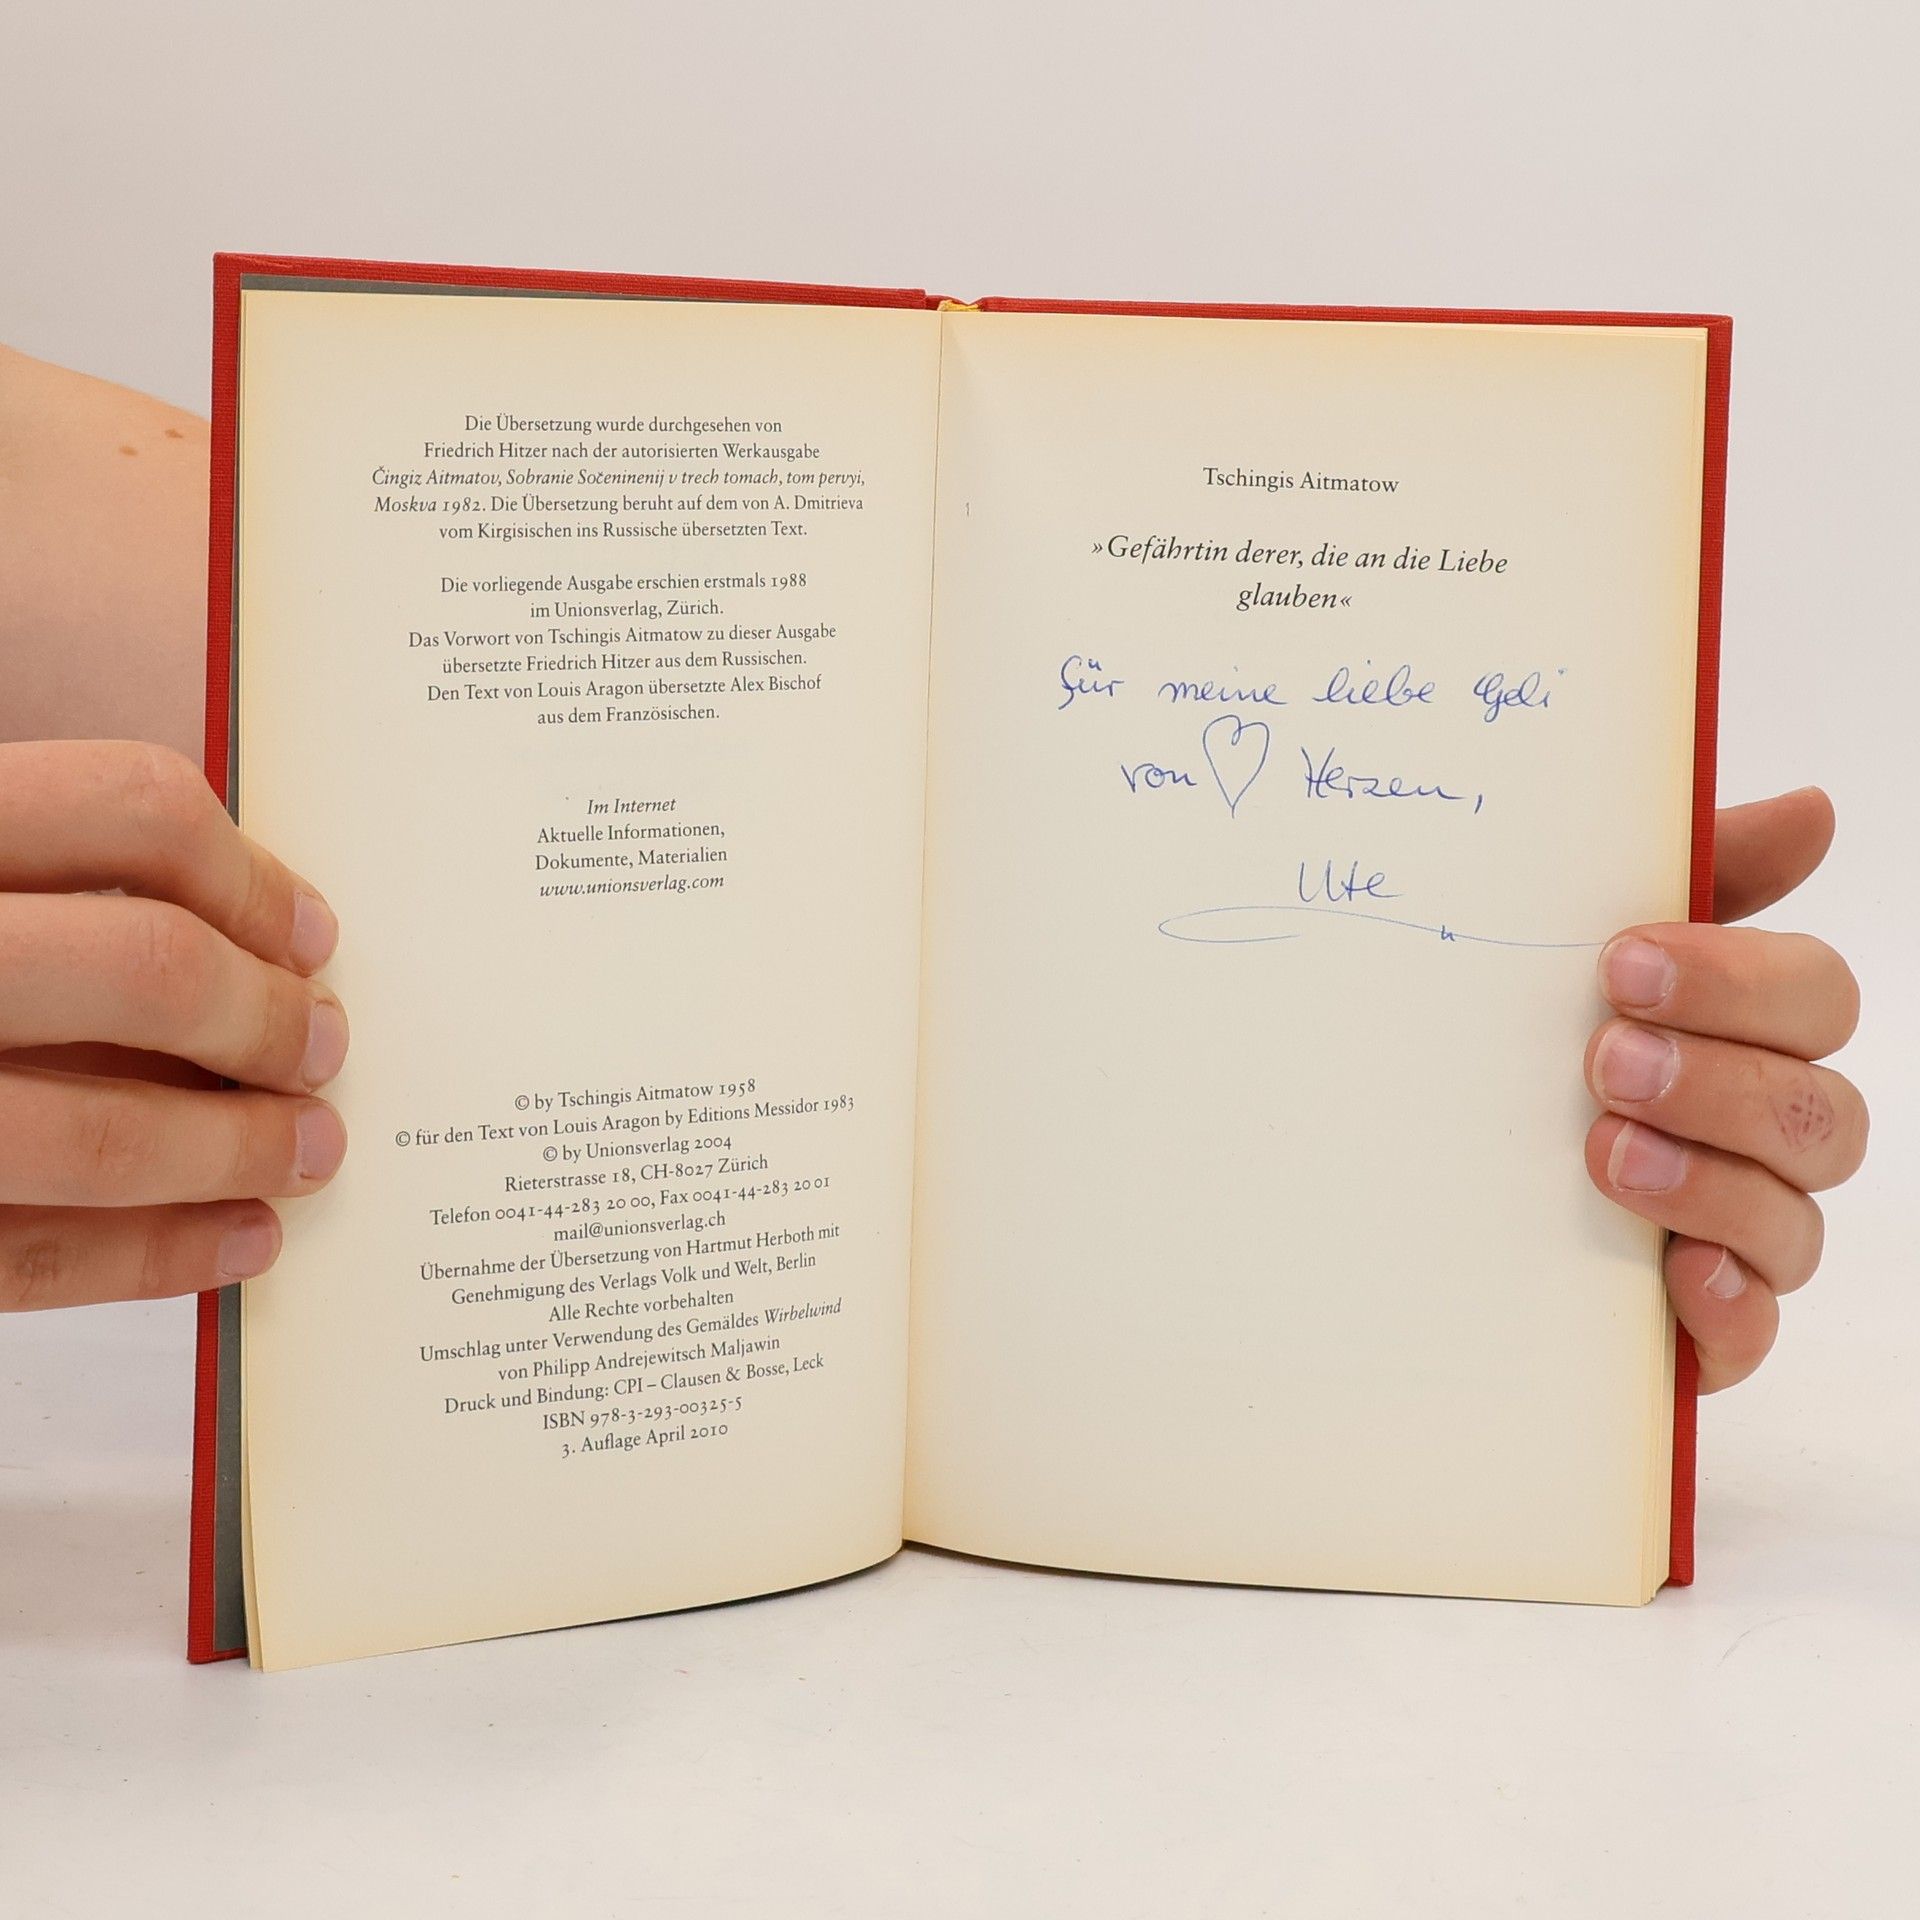 Die Übersetzung wurde durchgesehen von
Friedrich Hitzer nach der autorisierten Werkausgabe
Čingiz Aitmatov, Sobranie Sočeninenij v trech tomach, tom pervyi,
Moskva 1982. Die Übersetzung beruht auf dem von A. Dmitrieva
vom Kirgisischen ins Russische übersetzten Text.
Die vorliegende Ausgabe erschien erstmals 1988
im Unionsverlag, Zürich.
Das Vorwort von Tschingis Aitmatow zu dieser Ausgabe
übersetzte Friedrich Hitzer aus dem Russischen.
Den Text von Louis Aragon übersetzte Alex Bischof
aus dem Französischen.
Im Internet
Aktuelle Informationen,
Dokumente, Materialien
www.unionsverlag.com
© by Tschingis Aitmatow 1958
© für den Text von Louis Aragon by Editions Messidor 1983
© by Unionsverlag 2004
Rieterstrasse 18, CH-8027 Zürich
Telefon 0041-44-283 20 00, Fax 0041-44-283 20 01
mail@unionsverlag.ch
Übernahme der Übersetzung von Hartmut Herboth mit
Genehmigung des Verlags Volk und Welt, Berlin
Alle Rechte vorbehalten
Umschlag unter Verwendung des Gemäldes Wirbelwind
von Philipp Andrejewitsch Maljawin
Druck und Bindung: CPI – Clausen & Bosse, Leck
ISBN 978-3-293-00325-5
3. Auflage April 2010
Tschingis Aitmatow
»Gefährtin derer, die an die Liebe
glauben«
für meine liebe Geli
von Herzen,
Ute